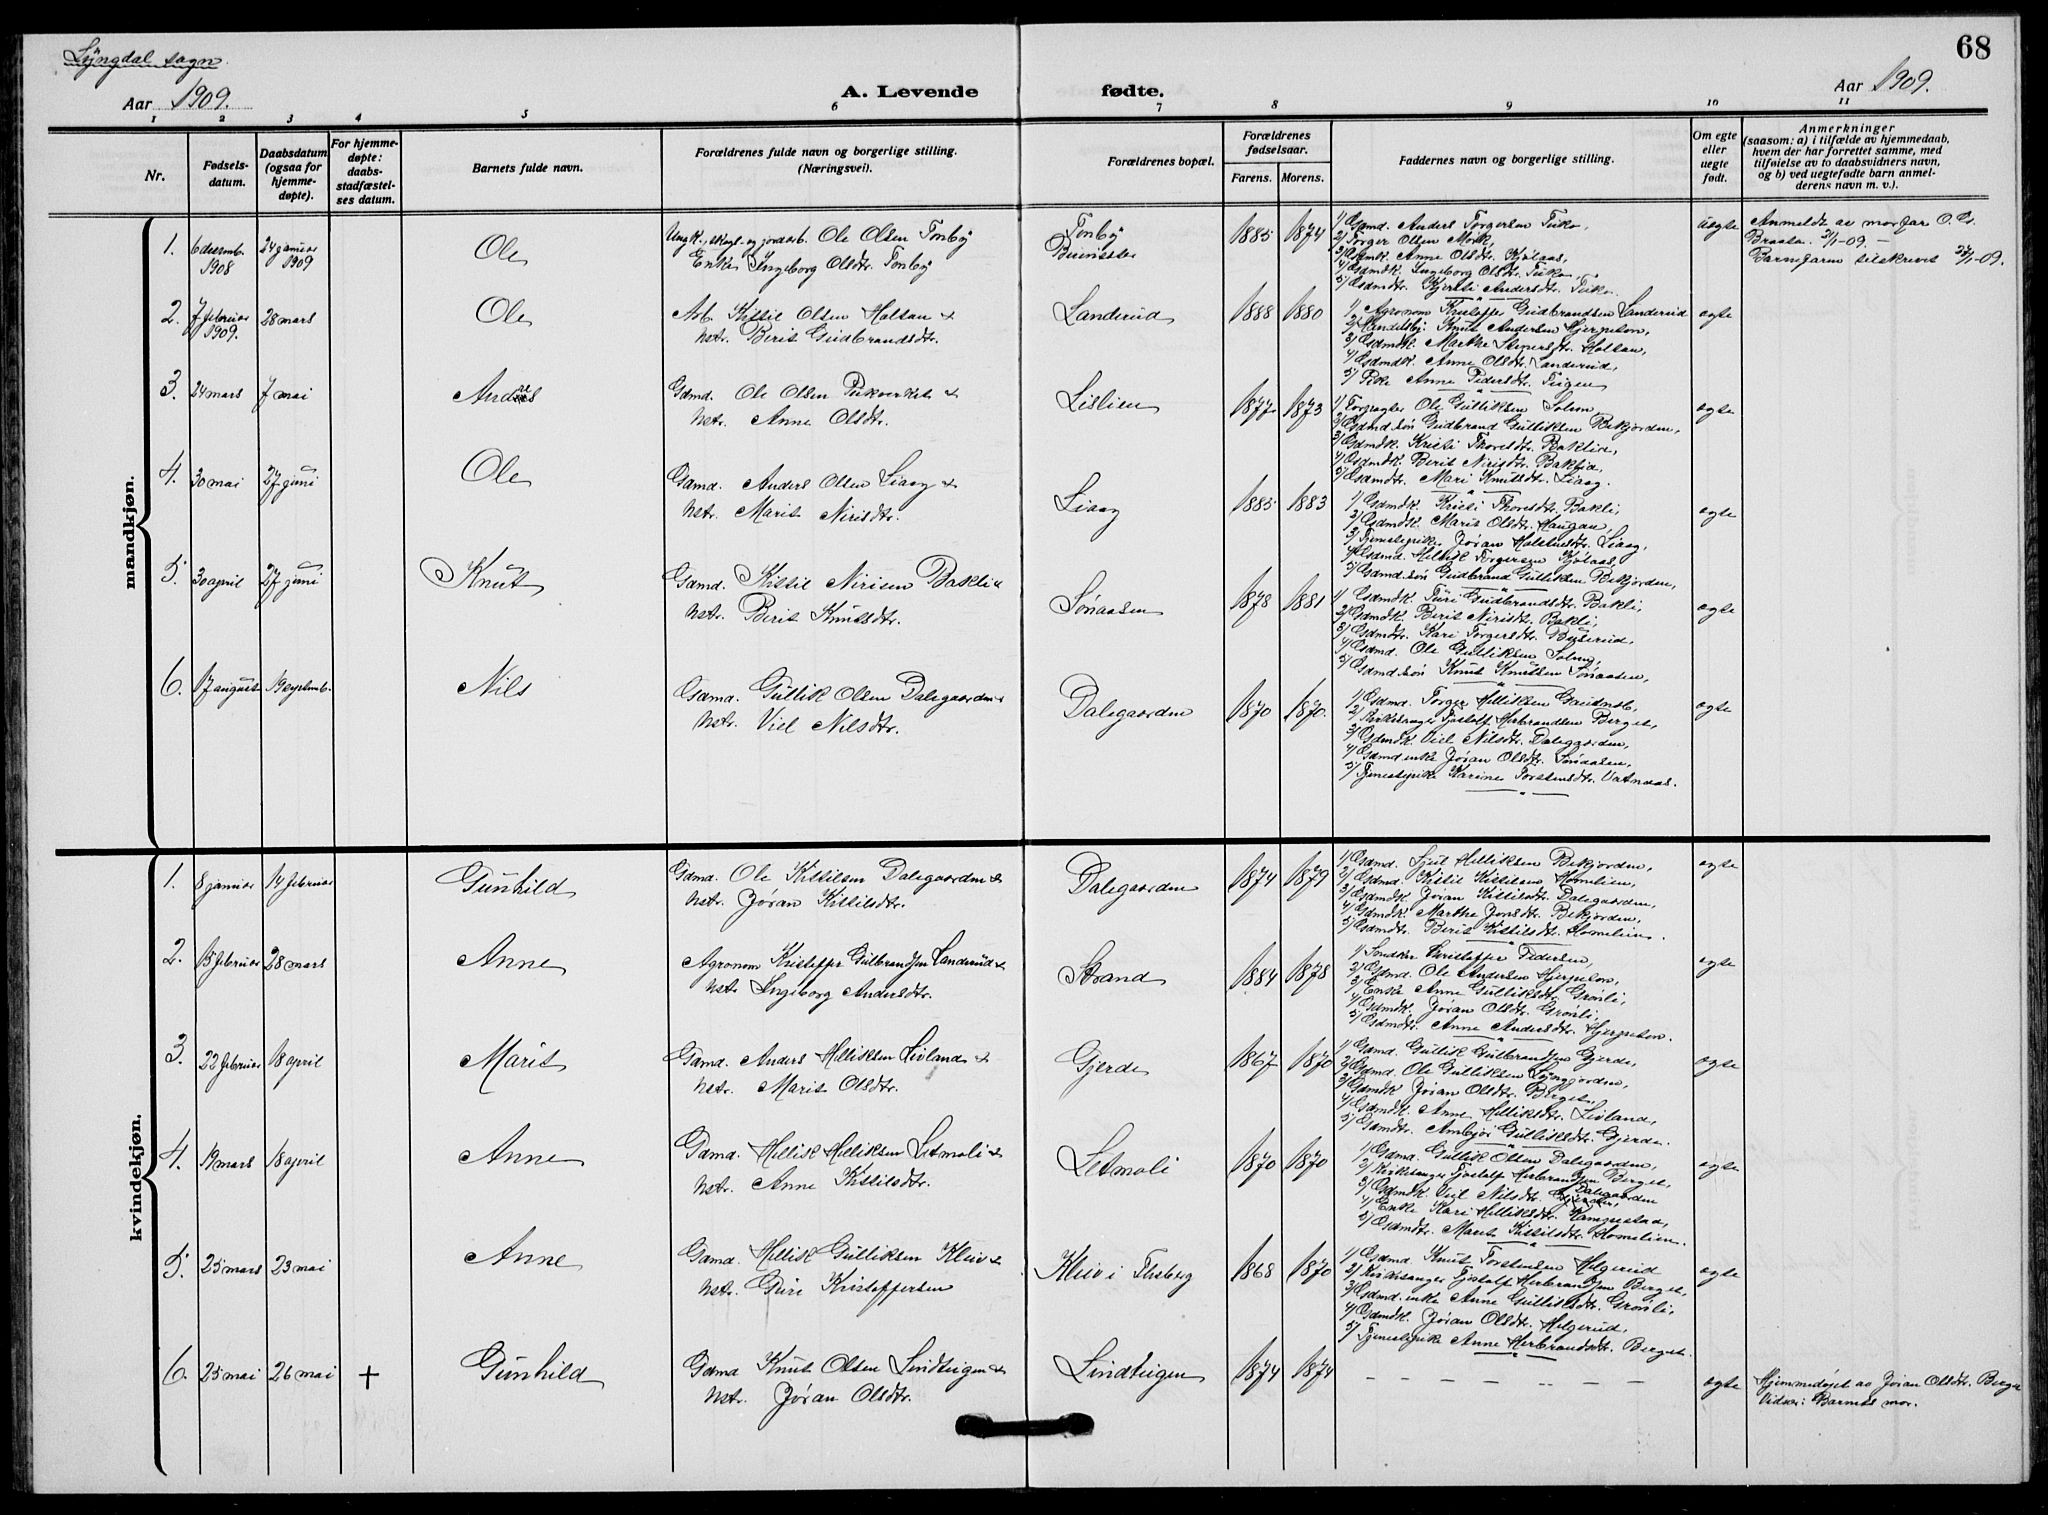 68
Lyngdal sogn.
Aar 1909.
A. Levende fødte.
Aar 1909.
1 2 3 4 5 6 7 8 9 10 11
Nr.
Fødsels-
datum.
Daabsdatum
(ogsaa for
hjemme-
døpte).
For hjemme-
døpte:
daabs-
stadfæstel-
ses datum.
Barnets fulde navn.
Forældrenes fulde navn og borgerlige stilling.
(Næringsvei).
Forældrenes bopæl.
Forældrenes
fødselsaar.
Farens. Morens.
Faddernes navn og borgerlige stilling.
Om egte
eller
uegte
født.
Anmerkninger
(saasom: a) i tilfælde av hjemmedaab,
hvem der har forrettet samme, med
tilføielse av to daabsvidners navn,
og b) ved uegtefødte barn anmel-
derens navn m. v.).
mandkjøn.
1. 6 decemb. 1908 24 januar 1909
Ole
Ungk., skogs- og jordarb. Ole Olsen Tonby
Enke Ingeborg Olsdtr. Tonby
Tonby
1885 1874
1/ Gdmd. Anders Torgersen
2/ Torger Olsen Mørk,
3/ Gdmdk. Anne Olsdtr. Kjølaas,
4/ Gdmdk. Ingeborg Olsdtr.
5/ Gdmdtr. Kjersti Andersdtr.
uegte
Anmeldt av morfar O. O.
Braata 21/1-09. –
tilskrevet 27/1-09.
2. 7 februar 1909. 28 mars
Ole
Arb. Kittil Olsen Holtan &
hstr. Berit Gudbrandsdtr.
Landerud
1888 1880
1/ Agronom Kristoffer Gudbrandsen Landerud
2/ Handelsbj. Knut Andersen Hjerpeton,
3/ Gdmdk. Marthe Steinersdtr. Holtan,
4/ Gdmdk. Anne Olsdtr. Landerud,
5/ Pike Anne Pedersdtr. Teigen
egte
3. 24 mars 7 mai
Anders
Gdmd. Ole Olsen Pukverket &
hstr. Anne Olsdtr.
Lislien
1877 1873
1/ Forpagter Ole Gulliksen Solem
2/ Gdmd.søn Gudbrand Gulliksen Bekjorden,
3/ Gdmdk. Kristi Thoresdtr. Baklia,
4/ Gdmdk. Berit Nirisdtr. Baklia,
5/ Gdmdtr. Mari Knutsdtr. Liaag.
egte
4. 30 mai 27 juni
Ole
Gdmd. Anders Olsen Liaag &
hstr. Marit Nirisdtr.
Liaag
1885 1883
1/ Gdmdk. Kristi Thoresdtr. Bakli,
2/ Gdmdk. Marit Olsdtr. Haugan,
3/ Tjenestepike Jøran Halstensdtr. Liaag,
4/ Gdmd. Hellik Torgersen Kjølaas,
5/ Gdmd.søn Gudbrand Gulliksen Bekjorden,
egte
5. 30 april 27 juni
Knut
Gdmd. Kittil Nirisen Bakli &
hstr. Berit Knutsdtr.
Sønaasen
1878 1881
1/ Gdmdk. Turi Gudbrandsdtr. Bakli,
2/ Gdmdk. Berit Nirisdtr. Bakli,
3/ Gdmdtr. Kari Torgersdtr. Buserud,
4/ Gdmd. Ole Gulliksen Solem,
5/ Gdmd.søn Knut Knutsen Sønaasen,
egte
6. 17 august 19 septemb.
Nils
Gdmd. Gullik Olsen Dalegaarden &
hstr. Viel Nilsdtr.
Dalegaarden
1870 1870.
1/ Gdmd. Torger Helliksen
2/ Kirkesanger Tjostolf Herbrandsen Berget,
3/ Gdmdk. Viel Nilsdtr. Dalegaarden,
4/ Gdmd.enke Jøran Olsdtr. Sønaasen,
5/ Tjenestepike Karine Torstensdtr. Vatnaas.
egte
kvindekjøn.
1. 8 januar 14 februar
Gunhild
Gdmd. Ole Kittilsen Dalegaarden &
hstr. Jøran Kittilsdtr.
Dalegaarden
1874 1879
1/ Gdmd. Sjul Helliksen Bekjorden,
2/ Gdmd. Kittil Kittilsen Homelien,
3/ Gdmdk. Jøran Kittilsdtr. Dalegaarden,
4/ Gdmdk. Marthe Jonsdtr. Bekjorden,
5/ Gdmdtr. Berit Kittilsdtr. Homelien.
egte
2. 15 februar 28 mars
Anne
Agronom Kristoffer Gulbrandsen Landerud &
hstr. Ingeborg Andersdtr.
Strand
1884 1878
1/ Snedker Kristoffer Pedersen,
2/ Gdmd. Ole Andersen Hjerpeton,
3/ Enke Anne Gulliksdtr. Grønli,
4/ Gdmdk. Jøran Olsdtr. Grønli,
5/ Gdmdtr. Anne Andersdtr. Hjerpeton.
egte
3. 22 februar 18 april
Marit
Gdmd. Anders Helliksen Livland &
hstr. Marit Olsdtr.
Gjerde
1867 1870
1/ Gdmd. Gullik Gulbrandsen Gjerde,
2/ Gdmd. Ole Gulliksen Lyngjorden,
3/ Gdmdk. Jøran Olsdtr. Berget,
4/ Gdmdk. Anne Helliksdtr. Livland,
5/ Gdmdtr. Ambjør Gulliksdtr. Gjerde.
egte
4. 19 mars 18 april
Anne
Gdmd. Hellik Helliksen Letmoli &
hstr. Anne Kittilsdtr.
Letmoli
1870 1870
1/ Gdmd. Gullik Olsen Dalegaarden,
2/ Kirkesanger Tjostolf Herbrandsen Berget,
3/ Gdmdk. Viel Nilsdtr. Dalegaarden
4/ Enke Kari Helliksdtr. Kampestad,
5/ Gdmdtr. Marit Kittilsdtr. Homelien.
egte
5. 25 mars 23 mai
Anne
Gdmd. Hellik Gulliksen Kleiv &
hstr. Guri Kristoffersen
Kleiv i Flesberg
1868 1870
1/ Gdmd. Knut Torstensen Helgerud
2/ Kirkesanger Tjostolf Herbrandsen Berget,
3/ Gdmd.enke Anne Gulliksdtr. Grønli,
4/ Gdmdk. Jøran Olsdtr. Helgerud,
5/ Tjenestepike Anne Herbrandsdtr. Berget.
egte
6. 25 mai 26 mai +
Gunhild
Gdmd Knut Olsen Lindteigen &
hstr. Jøran Olsdtr.
Lindteigen
1874 1874
– – – – – – –
egte
Hjemmedøpt av Jøran Olsdtr. Berget
Vidner: Barnets mor.